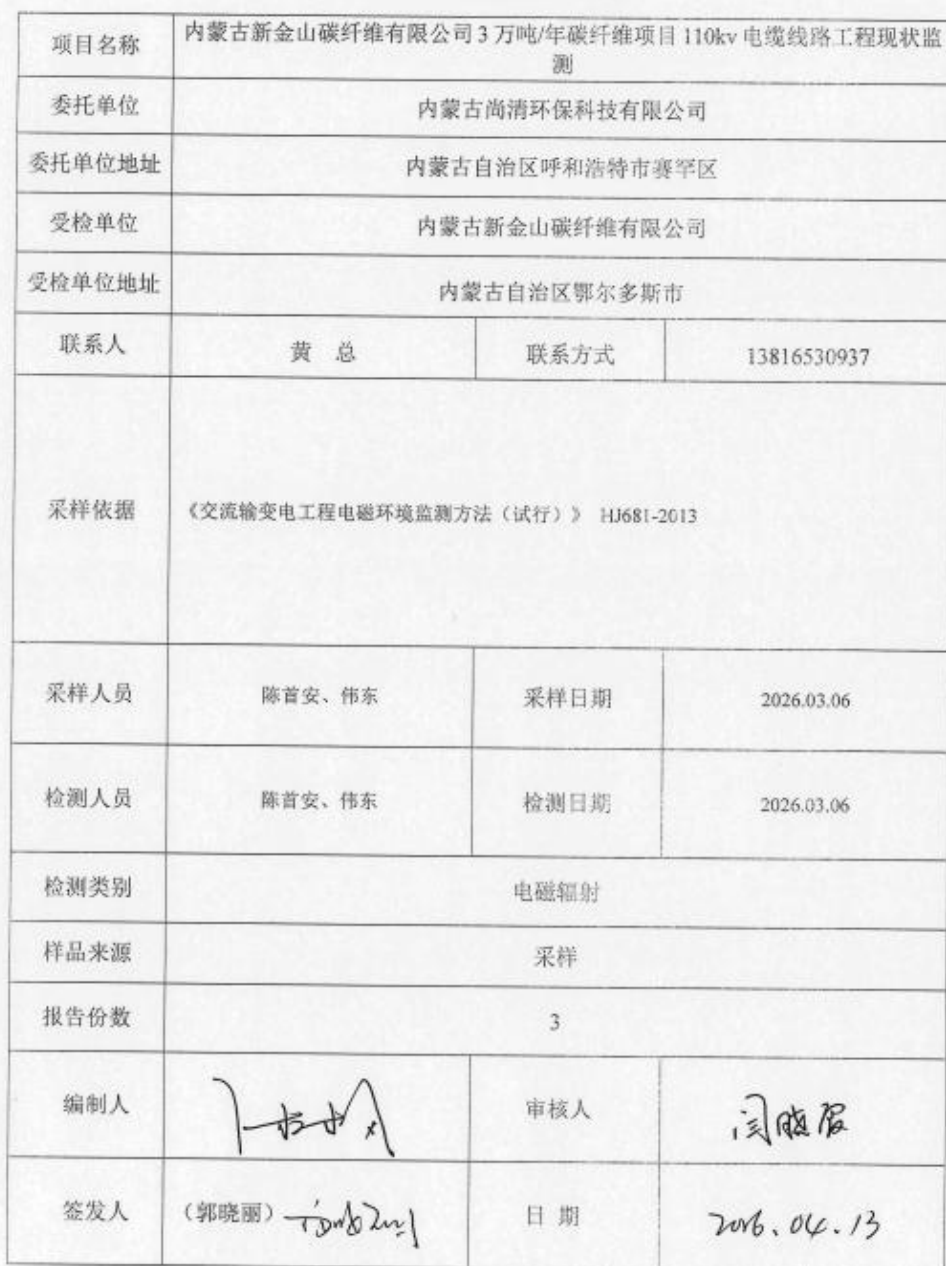 项目名称
内蒙古新金山碳纤维有限公司3万吨/年碳纤维项目110kv电缆线路工程现状监
测
委托单位
内蒙古尚清环保科技有限公司
委托单位地址
内蒙古自治区呼和浩特市赛罕区
受检单位
内蒙古新金山碳纤维有限公司
受检单位地址
内蒙古自治区鄂尔多斯市
联系人
黄 总
联系方式
13816530937
采样依据
《交流输变电工程电磁环境监测方法（试行）》 HJ681-2013
采样人员
陈首安、伟东
采样日期
2026.03.06
检测人员
陈首安、伟东
检测日期
2026.03.06
检测类别
电磁辐射
样品来源
采样
报告份数
3
编制人
审核人
签发人
（郭晓丽）
日 期
2026.04.13